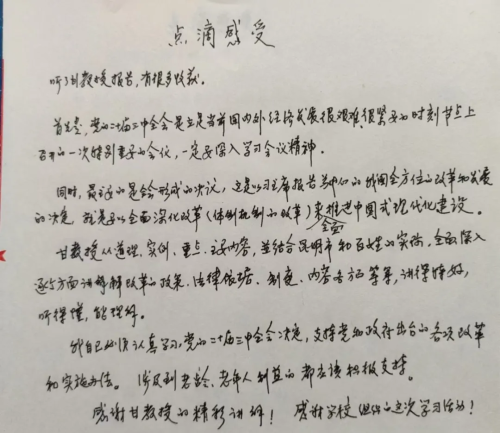 点滴感受
听了刘教授报告,有很多收获。
首先是,党的二十届三中全会是立足当前国内外经济发展很艰难很紧要的时刻节点上
召开的一次特别重要的会议,一定要深入学习会议精神。
同时,最主要的是全会形成的决议,这是以习主席报告为中心的我国全方位的改革和发展
的决定,就是要以全面深化改革(体制机制的改革)来推进中国式现代化建设。
全面
甘教授从道理、实例、重点、主要内容,并结合昆明市和百姓的实际,全面深入
逐步方面讲解改革的政策、法律依据、制度、内容各方面等等,讲得特好,
听得懂,能理解。
我自己必须认真学习,党的二十届三中全会决定,支持党和政府出台的各项改革
和实施办法。涉及到老龄、老年人利益的都应该积极支持。
感谢甘教授的精彩讲解!感谢学校组织的这次学习活动!